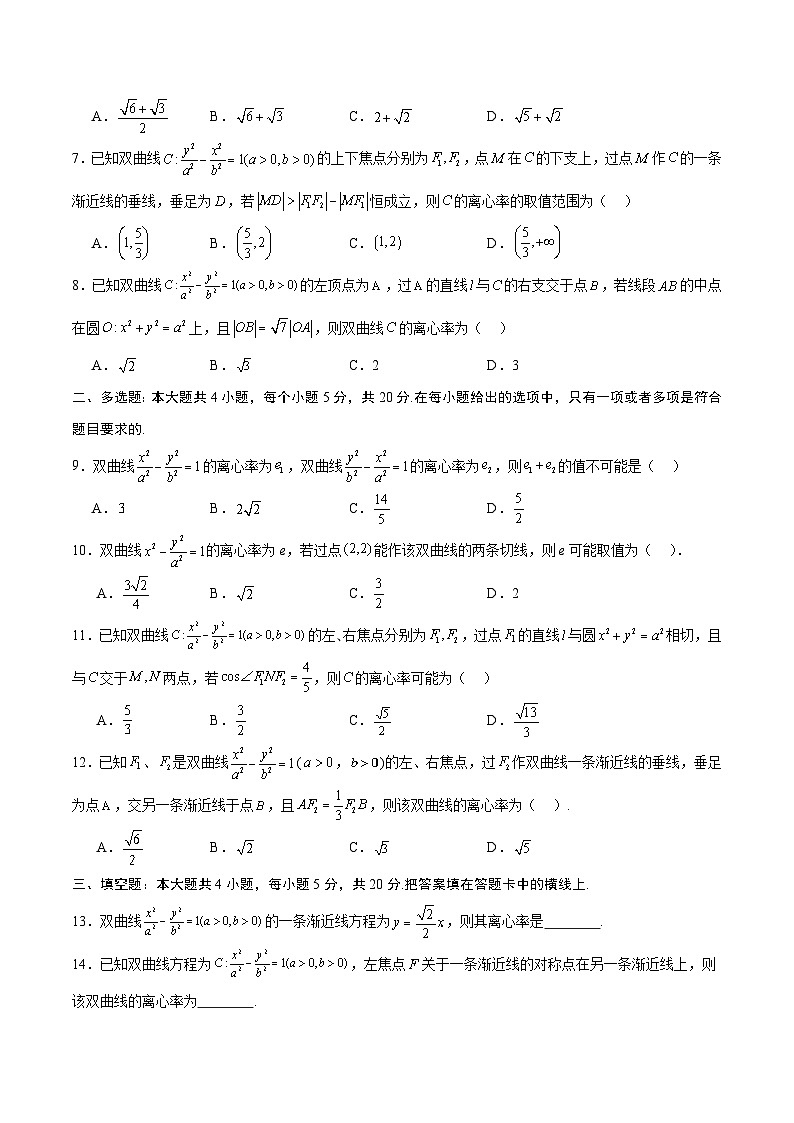 A. (√6+√3)/2 B. √6+√3 C. 2+√2 D. √5+√2
7.已知双曲线C:y²/a²−x²/b²=1(a>0,b>0)的上下焦点分别为F₁,F₂,点M在C的下支上,过点M作C的一条
渐近线的垂线,垂足为D,若|MD|>|F₁F₂|−|MF₁|恒成立,则C的离心率的取值范围为( )
A. (1,5/3) B. (5/3,2) C. (1,2) D. (5/3,+∞)
8.已知双曲线C:x²/a²−y²/b²=1(a>0,b>0)的左顶点为A,过A的直线l与C的右支交于点B,若线段AB的中点
在圆O:x²+y²=a²上,且|OB|=√7|OA|,则双曲线C的离心率为( )
A. √2 B. √3 C.2 D.3
二、多选题:本大题共4小题,每个小题5分,共20分.在每小题给出的选项中,只有一项或者多项是符合
题目要求的.
9.双曲线x²/a²−y²/b²=1的离心率为e₁,双曲线y²/b²−x²/a²=1的离心率为e₂,则e₁+e₂的值不可能是( )
A.3 B. 2√2 C. 14/5 D. 5/2
10.双曲线x²−y²/a²=1的离心率为e,若过点(2,2)能作该双曲线的两条切线,则e可能取值为( ).
A. 3√2/4 B. √2 C. 3/2 D.2
11.已知双曲线C:x²/a²−y²/b²=1(a>0,b>0)的左、右焦点分别为F₁,F₂,过点F₁的直线l与圆x²+y²=a²相切,且
与C交于M,N两点,若cos∠F₁NF₂=4/5,则C的离心率可能为( )
A. 5/3 B. 3/2 C. √5/2 D. √13/3
12.已知F₁、F₂是双曲线x²/a²−y²/b²=1(a>0,b>0)的左、右焦点,过F₂作双曲线一条渐近线的垂线,垂足
为点A,交另一条渐近线于点B,且AF₂=1/3F₂B,则该双曲线的离心率为( ).
A. √6/2 B. √2 C. √3 D. √5
三、填空题:本大题共4小题,每小题5分,共20分.把答案填在答题卡中的横线上.
13.双曲线x²/a²−y²/b²=1(a>0,b>0)的一条渐近线方程为y=√2/2x,则其离心率是________.
14.已知双曲线方程为C:x²/a²−y²/b²=1(a>0,b>0),左焦点F关于一条渐近线的对称点在另一条渐近线上,则
该双曲线的离心率为________.